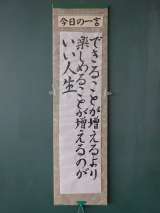 今日の一言
できることが増えるより
楽しめることが増えるのが
いい人生